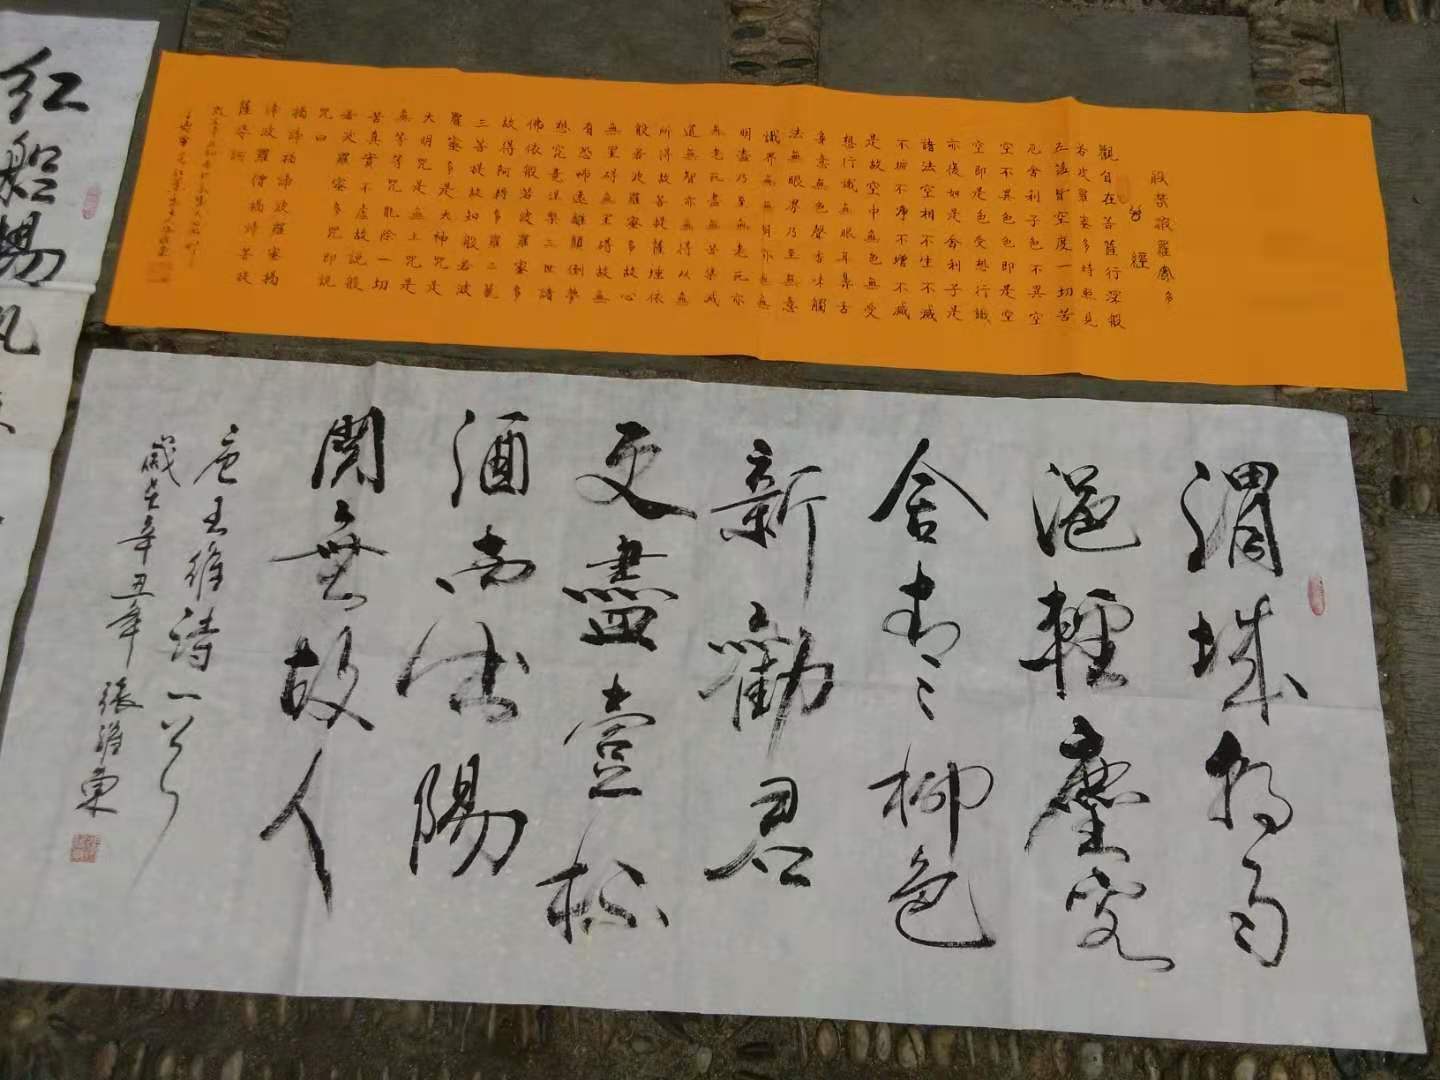 般若波羅蜜多
心經
觀自在菩薩行深般
若波羅蜜多時照見
五蘊皆空度一切苦
厄舍利子色不異空
空不異色色即是空
空即是色受想行識
亦復如是舍利子是
諸法空相不生不滅
不垢不淨不增不減
是故空中無色無受
想行識無眼耳鼻舌
身意無色聲香味觸
法無眼界乃至無意
識界無無明亦無無
明盡乃至無老死亦
無老死盡無苦集滅
道無智亦無得以無
所得故菩提薩埵依
般若波羅蜜多故心
無罣碍無罣碍故無
有恐怖遠離顛倒夢
想究竟涅槃三世諸
佛依般若波羅蜜多
故得阿耨多羅三藐
三菩提故知般若波
羅蜜多是大神咒是
大明咒是無上咒是
無等等咒能除一切
苦真實不虛故說般
若波羅蜜多咒即說
咒曰
揭諦揭諦波羅蜜揭
諦波羅僧揭諦菩提
薩婆訶
渭城朝雨
浥輕塵客
舍青〻柳色
新勸君
更盡壹杯
酒西出陽
關無故人
唐王維詩一首
歲在辛丑年 張維東
紅船揚帆